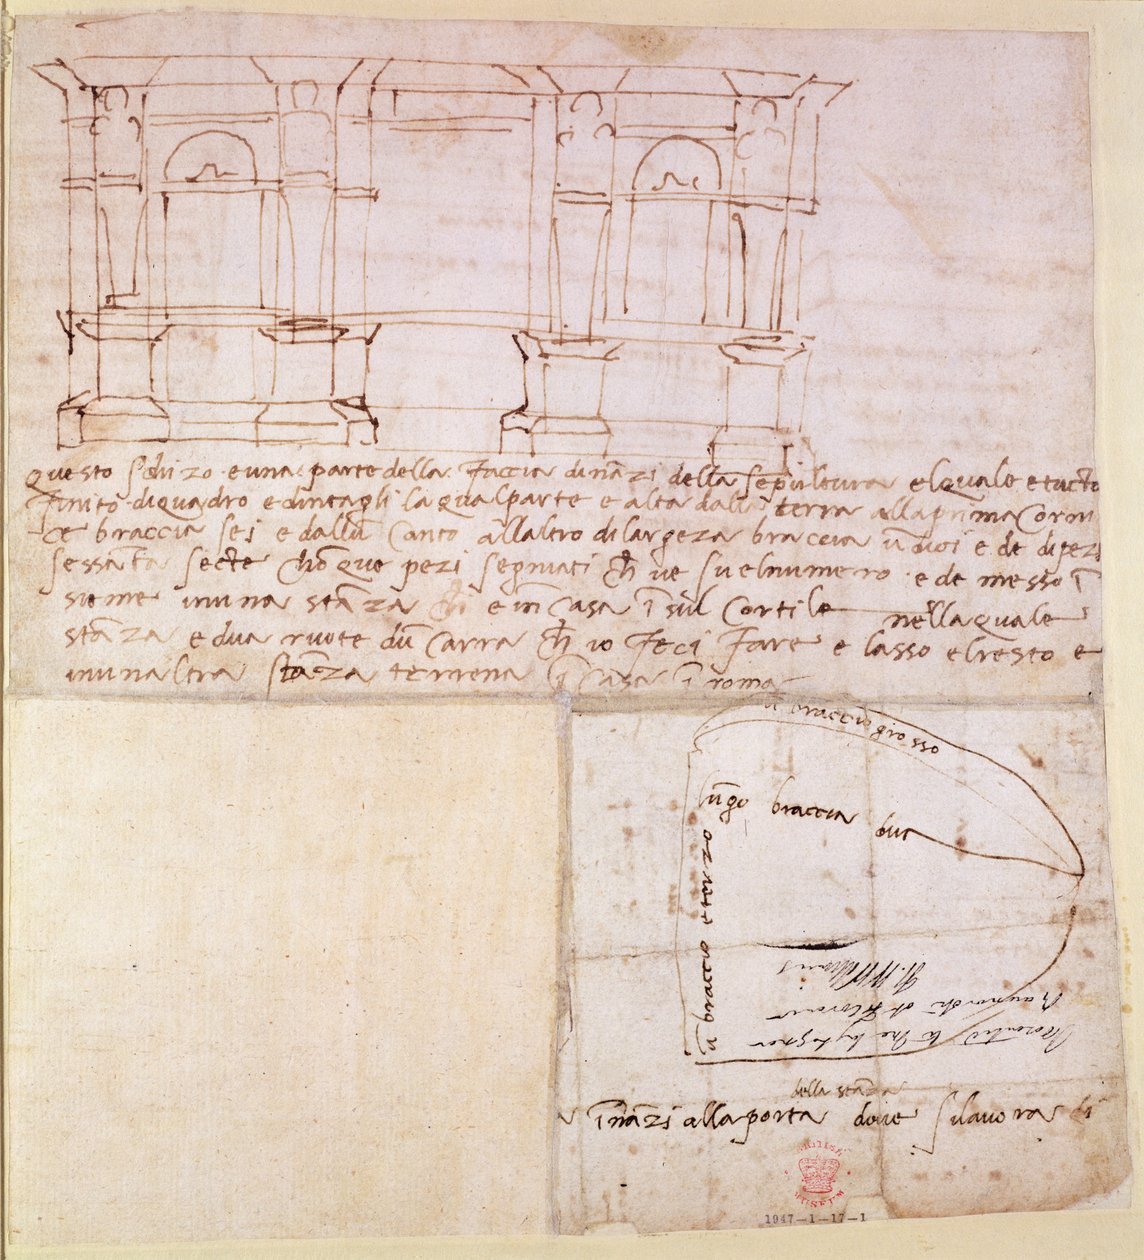 questo schizo e una parte della faccia dinãzi della sepultura elquale e tucta
finito di quadro e dintagli la qual parte e alta dalla terra alla prima corni
ce braccia sei e dallũ canto allaltro di largeza braccia ũdici e de di pezi
sessãta secte cioque pezi segniati ch ve su elnumero e de messo ĩ
sieme inuna stãza ch e in casa ĩ sul cortile nella quale
stãza e dua ruote dũ carra ch io feci fare e lasso elresto e
inunaltra stãza terrena ĩ casa ĩ roma
ũ braccio grosso
lũgo braccia dua
ũ braccio e terzo
Presented to me by Signor
Buonarroti at Florence
della stãza
ĩnãzi alla porta dove si lavora di
BRITISH
MUSEUM
1947-1-17-1